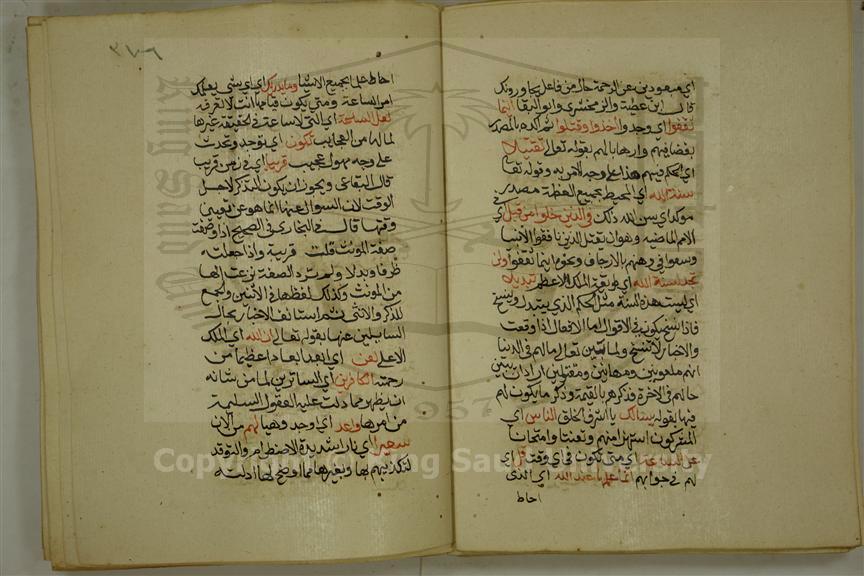 اي مبعودين عن الرحمة حال من فاعل يجاورونك
قال ابن عطية والزمخشري وابو البقا اينما
ثقفوا اي وجدوا اخذوا وقتلوا ثم اكده بالمصدر
بغضا فيهم وارهابا لهم بقوله تعالى تقتيلا
اي الحكم فيهم هذا على وجه الامر به وقوله تعالى
سنة الله اي المحيط بجميع العظمة مصدر
موكد اي سن الله ذلك في الذين خلوا من قبل اي في
الامم الماضيه وهو ان تقتل الذين نافقوا الانبيا
وسعوا في وهنهم بالارجاف ونحوه اينما ثقفوا ولن
تجد لسنة الله اي طريقة الملك الاعظم تبديلا
اي ليست هذه السنة مثل الحكم الذي يتبدل وينسخ
فان النسخ يكون في الاقوال اما الافعال اذا وقعت
والاخبار لا تنسخ ولما بين تعالى حالهم في الدنيا
انهم ملعونين ومهانين ومقتلين اراد ان يبين
حالهم في الاخرة فذكرهم بالقيمة وذكر ما يكون لهم
فيها بقوله يسالك يا اشرف الخلق الناس اي
المشركون استهزا منهم وتعنتا وامتحانا
عن الساعة اي متى تكون في اي وقت قل اي
لهم في جوابهم انما علمها عند الله اي الذي
احاط
٣٧٦
احاط علما بجميع الاشيا وما يدريك اي اي شي يعلمك
امر الساعة ومتى يكون قيامها انت لا تعرفه
لعل الساعة اي التي لا ساعة في الحقيقة غيرها
لما لها من العجايب تكون اي توجد وتحدث
على وجه مهول عجيب قريبا اي في زمن قريب
قال البقاعي ويجوز ان يكون التذكير لاجل
الوقت لان السوال عنها انما هو عن تعيين
وقتها قال في البخاري في الصحيح اذا وصفت
صفة المونث قلت قريبة واذا جعلته
ظرفا وبدلا ولم ترد الصفة نزعت الها
من المونث وكذلك لفظها في الاثنين والجمع
للذكر والانثى ثم استانف الاخبار بحال
السايلين عنها بقوله تعالى ان الله اي الملك
الاعلى لعن اي ابعد ابعادا عظيما من
رحمته الكافرين اي الساترين لما من شانه
ان يظهر مما دلت عليه العقول السليمة
من امرها واعد اي اوجد وهيا لهم من الان
سعيرا اي نارا شديدة الاضطرام والتوقد
لتكذيبهم بها وبغيرها مما اوضح لهم ادلته
1957
Copyright © King Saud University